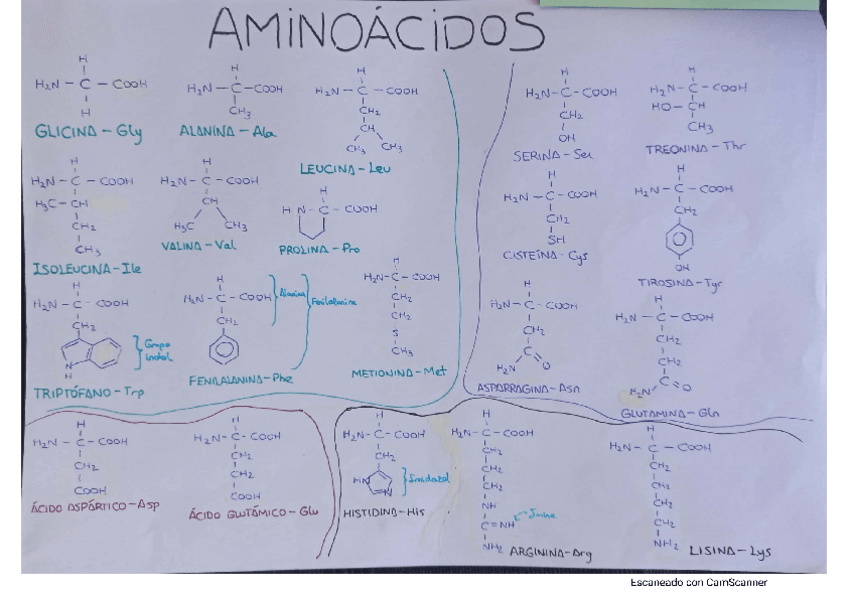 AMINOÁCIDOS
H
H₂N - C - COOH
H
GLICINA - Gly
H
H₂N - C - COOH
CH₃
ALANINA - Ala
H
H₂N - C - COOH
CH₂
CH
CH₃ CH₃
LEUCINA - Leu
H
H₂N - C - COOH
CH₂
OH
SERINA - Ser
H
H₂N - C - COOH
HO - CH
CH₃
TREONINA - Thr
H
H₂N - C - COOH
H₃C - CH
CH₂
CH₃
ISOLEUCINA - Ile
H
H₂N - C - COOH
CH
H₃C CH₃
VALINA - Val
H
H N - C - COOH
PROLINA - Pro
H
H₂N - C - COOH
CH₂
SH
CISTEÍNA - Cys
H
H₂N - C - COOH
CH₂
OH
TIROSINA - Tyr
H
H₂N - C - COOH
CH₂
N
H
Grupo
Indol
TRIPTÓFANO - Trp
H
H₂N - C - COOH
CH₂
Alanina
Fenilalanina
FENILALANINA - Phe
H
H₂N - C - COOH
CH₂
CH₂
S
CH₃
METIONINA - Met
H
H₂N - C - COOH
CH₂
C
H₂N O
ASPARRAGINA - Asn
H
H₂N - C - COOH
CH₂
CH₂
H₂N C O
GLUTAMINA - Gln
H
H₂N - C - COOH
CH₂
COOH
ÁCIDO ASPÁRTICO - Asp
H
H₂N - C - COOH
CH₂
CH₂
COOH
ÁCIDO GLUTÁMICO - Glu
H
H₂N - C - COOH
CH₂
HN
N
Imidazol
HISTIDINA - His
H
H₂N - C - COOH
CH₂
CH₂
CH₂
NH
C = NH
Imina
NH₂
ARGININA - Arg
H
H₂N - C - COOH
CH₂
CH₂
CH₂
CH₂
NH₂
LISINA - Lys
Escaneado con CamScanner